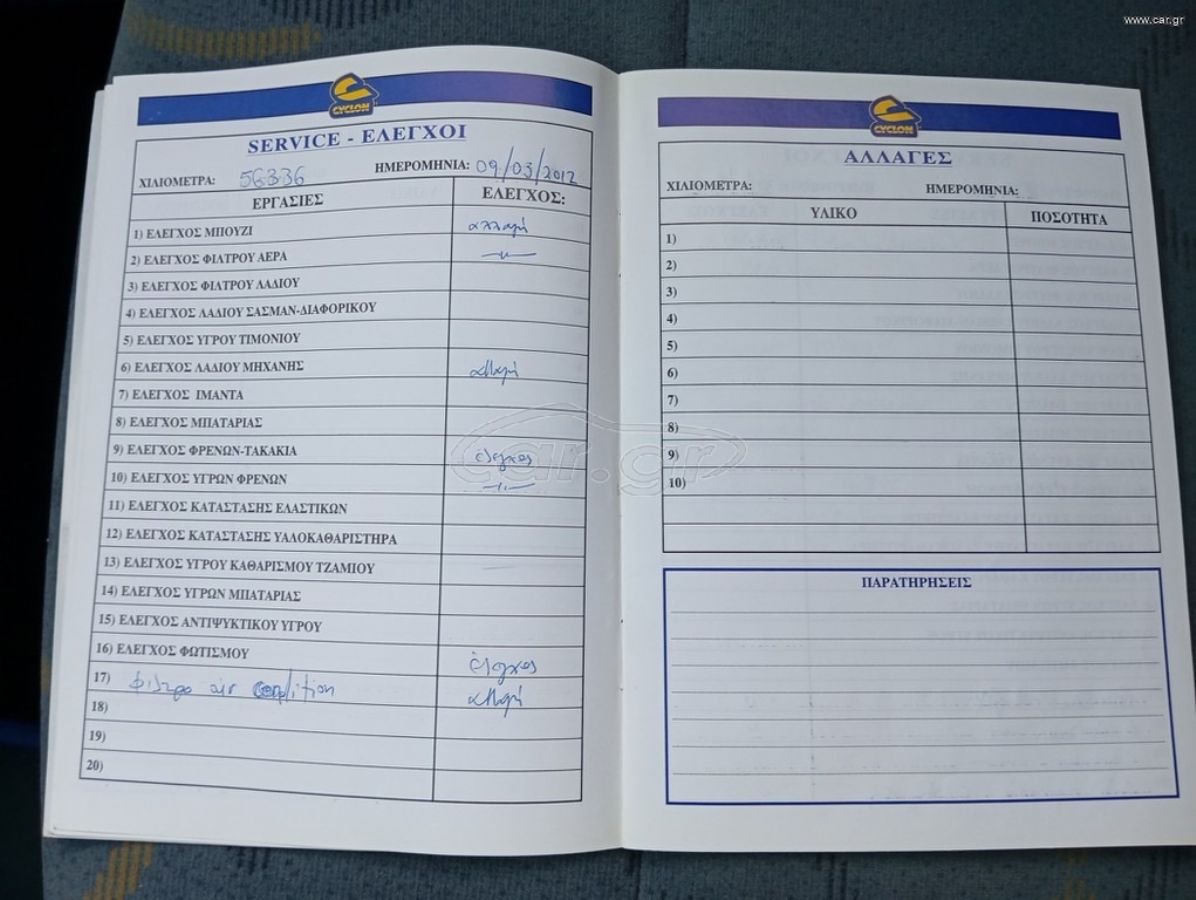 www.car.gr
CYCLON
SERVICE - ΕΛΕΓΧΟΙ
ΧΙΛΙΟΜΕΤΡΑ: 56336 ΗΜΕΡΟΜΗΝΙΑ: 09/03/2012
ΕΡΓΑΣΙΕΣ ΕΛΕΓΧΟΣ:
1) ΕΛΕΓΧΟΣ ΜΠΟΥΖΙ αλλαγή
2) ΕΛΕΓΧΟΣ ΦΙΛΤΡΟΥ ΑΕΡΑ -//-
3) ΕΛΕΓΧΟΣ ΦΙΛΤΡΟΥ ΛΑΔΙΟΥ
4) ΕΛΕΓΧΟΣ ΛΑΔΙΟΥ ΣΑΣΜΑΝ-ΔΙΑΦΟΡΙΚΟΥ
5) ΕΛΕΓΧΟΣ ΥΓΡΟΥ ΤΙΜΟΝΙΟΥ
6) ΕΛΕΓΧΟΣ ΛΑΔΙΟΥ ΜΗΧΑΝΗΣ αλλαγή
7) ΕΛΕΓΧΟΣ ΙΜΑΝΤΑ
8) ΕΛΕΓΧΟΣ ΜΠΑΤΑΡΙΑΣ
9) ΕΛΕΓΧΟΣ ΦΡΕΝΩΝ-ΤΑΚΑΚΙΑ έλεγχος
10) ΕΛΕΓΧΟΣ ΥΓΡΩΝ ΦΡΕΝΩΝ -//-
11) ΕΛΕΓΧΟΣ ΚΑΤΑΣΤΑΣΗΣ ΕΛΑΣΤΙΚΩΝ
12) ΕΛΕΓΧΟΣ ΚΑΤΑΣΤΑΣΗΣ ΥΑΛΟΚΑΘΑΡΙΣΤΗΡΑ
13) ΕΛΕΓΧΟΣ ΥΓΡΟΥ ΚΑΘΑΡΙΣΜΟΥ ΤΖΑΜΙΟΥ
14) ΕΛΕΓΧΟΣ ΥΓΡΩΝ ΜΠΑΤΑΡΙΑΣ
15) ΕΛΕΓΧΟΣ ΑΝΤΙΨΥΚΤΙΚΟΥ ΥΓΡΟΥ
16) ΕΛΕΓΧΟΣ ΦΩΤΙΣΜΟΥ έλεγχος
17) φιλτρο air condition αλλαγή
18)
19)
20)
CYCLON
ΑΛΛΑΓΕΣ
ΧΙΛΙΟΜΕΤΡΑ: ΗΜΕΡΟΜΗΝΙΑ:
ΥΛΙΚΟ ΠΟΣΟΤΗΤΑ
1)
2)
3)
4)
5)
6)
7)
8)
9)
10)
ΠΑΡΑΤΗΡΗΣΕΙΣ
car.gr